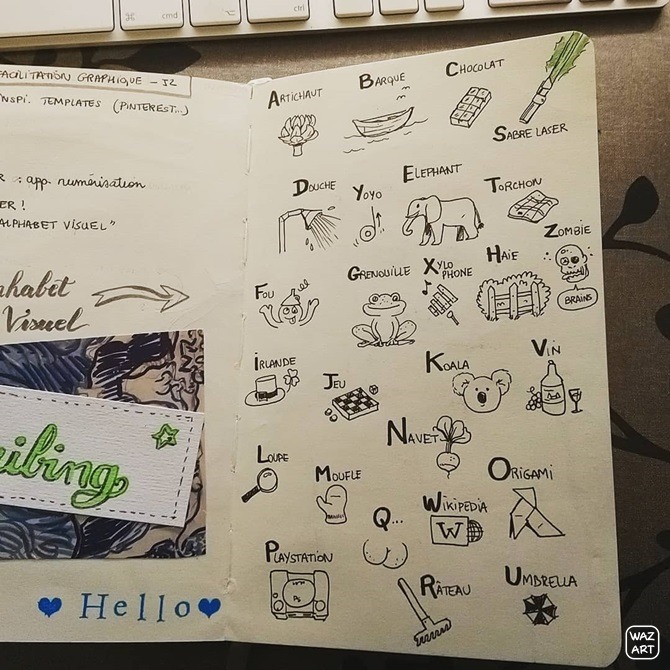 cmd
ctrl
FACILITATION GRAPHIQUE - J2
INSPI. TEMPLATES (PINTEREST...)
R : app. numérisation
ER !
ALPHABET VISUEL"
phabet
Visuel
ibing
Hello
ARTICHAUT
BARQUE
CHOCOLAT
SABRE LASER
DOUCHE
YOYO
ELEPHANT
TORCHON
ZOMBIE
BRAINS
FOU
GRENOUILLE
XYLO
PHONE
HAIE
IRLANDE
JEU
KOALA
VIN
NAVET
LOUPE
MOUFLE
Q...
WIKIPEDIA
W
ORIGAMI
PLAYSTATION
PS
RÂTEAU
UMBRELLA
WAZ
ART